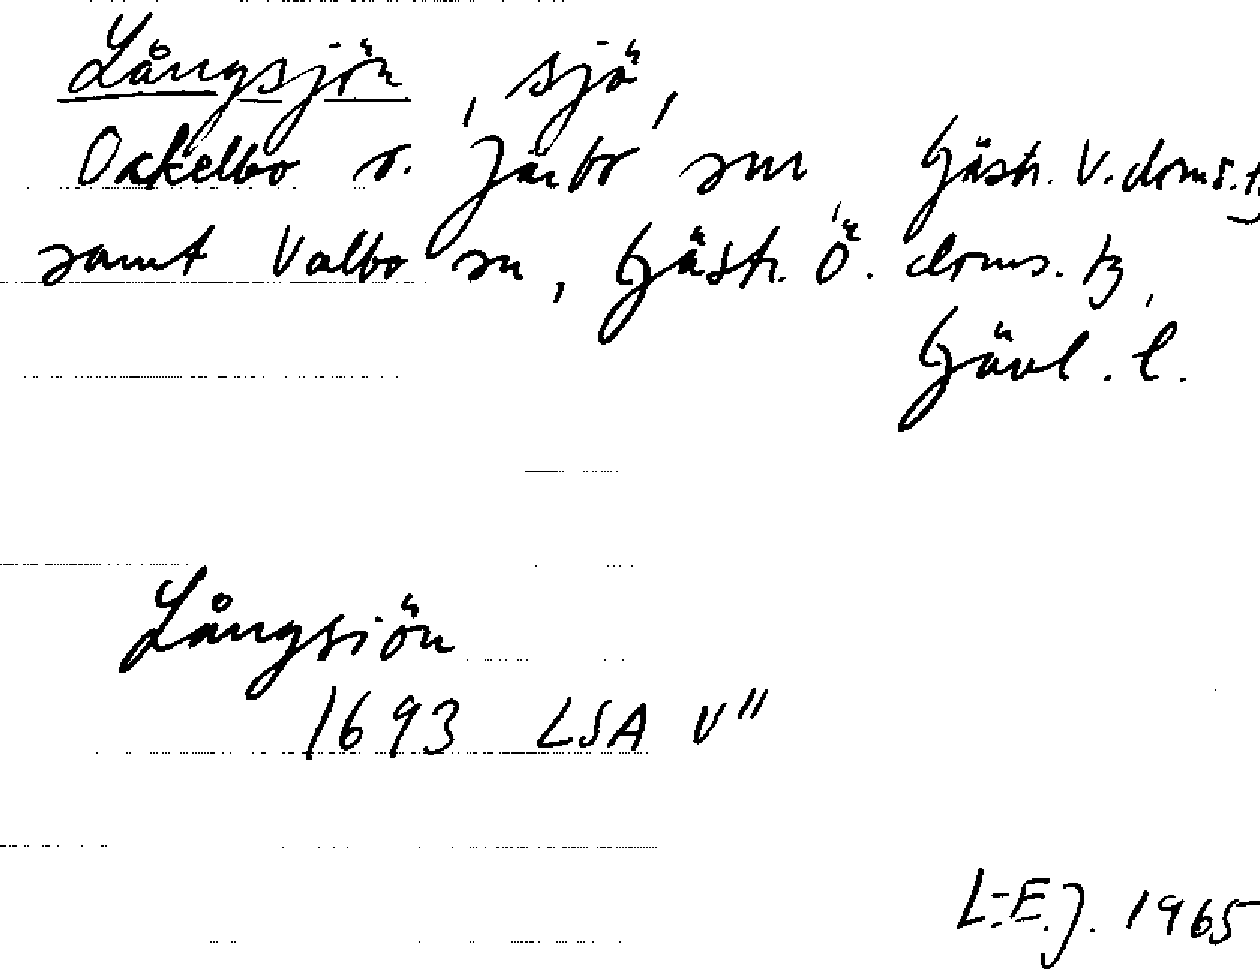 Långsjön, sjö,
Ockelbo o. Järbo snr Gästr. V. doms. tg
samt Valbo sn, Gästr. Ö. doms. tg,
Gävl. l.
Långsiön
1693 LSA V"
L-E.J. 1965